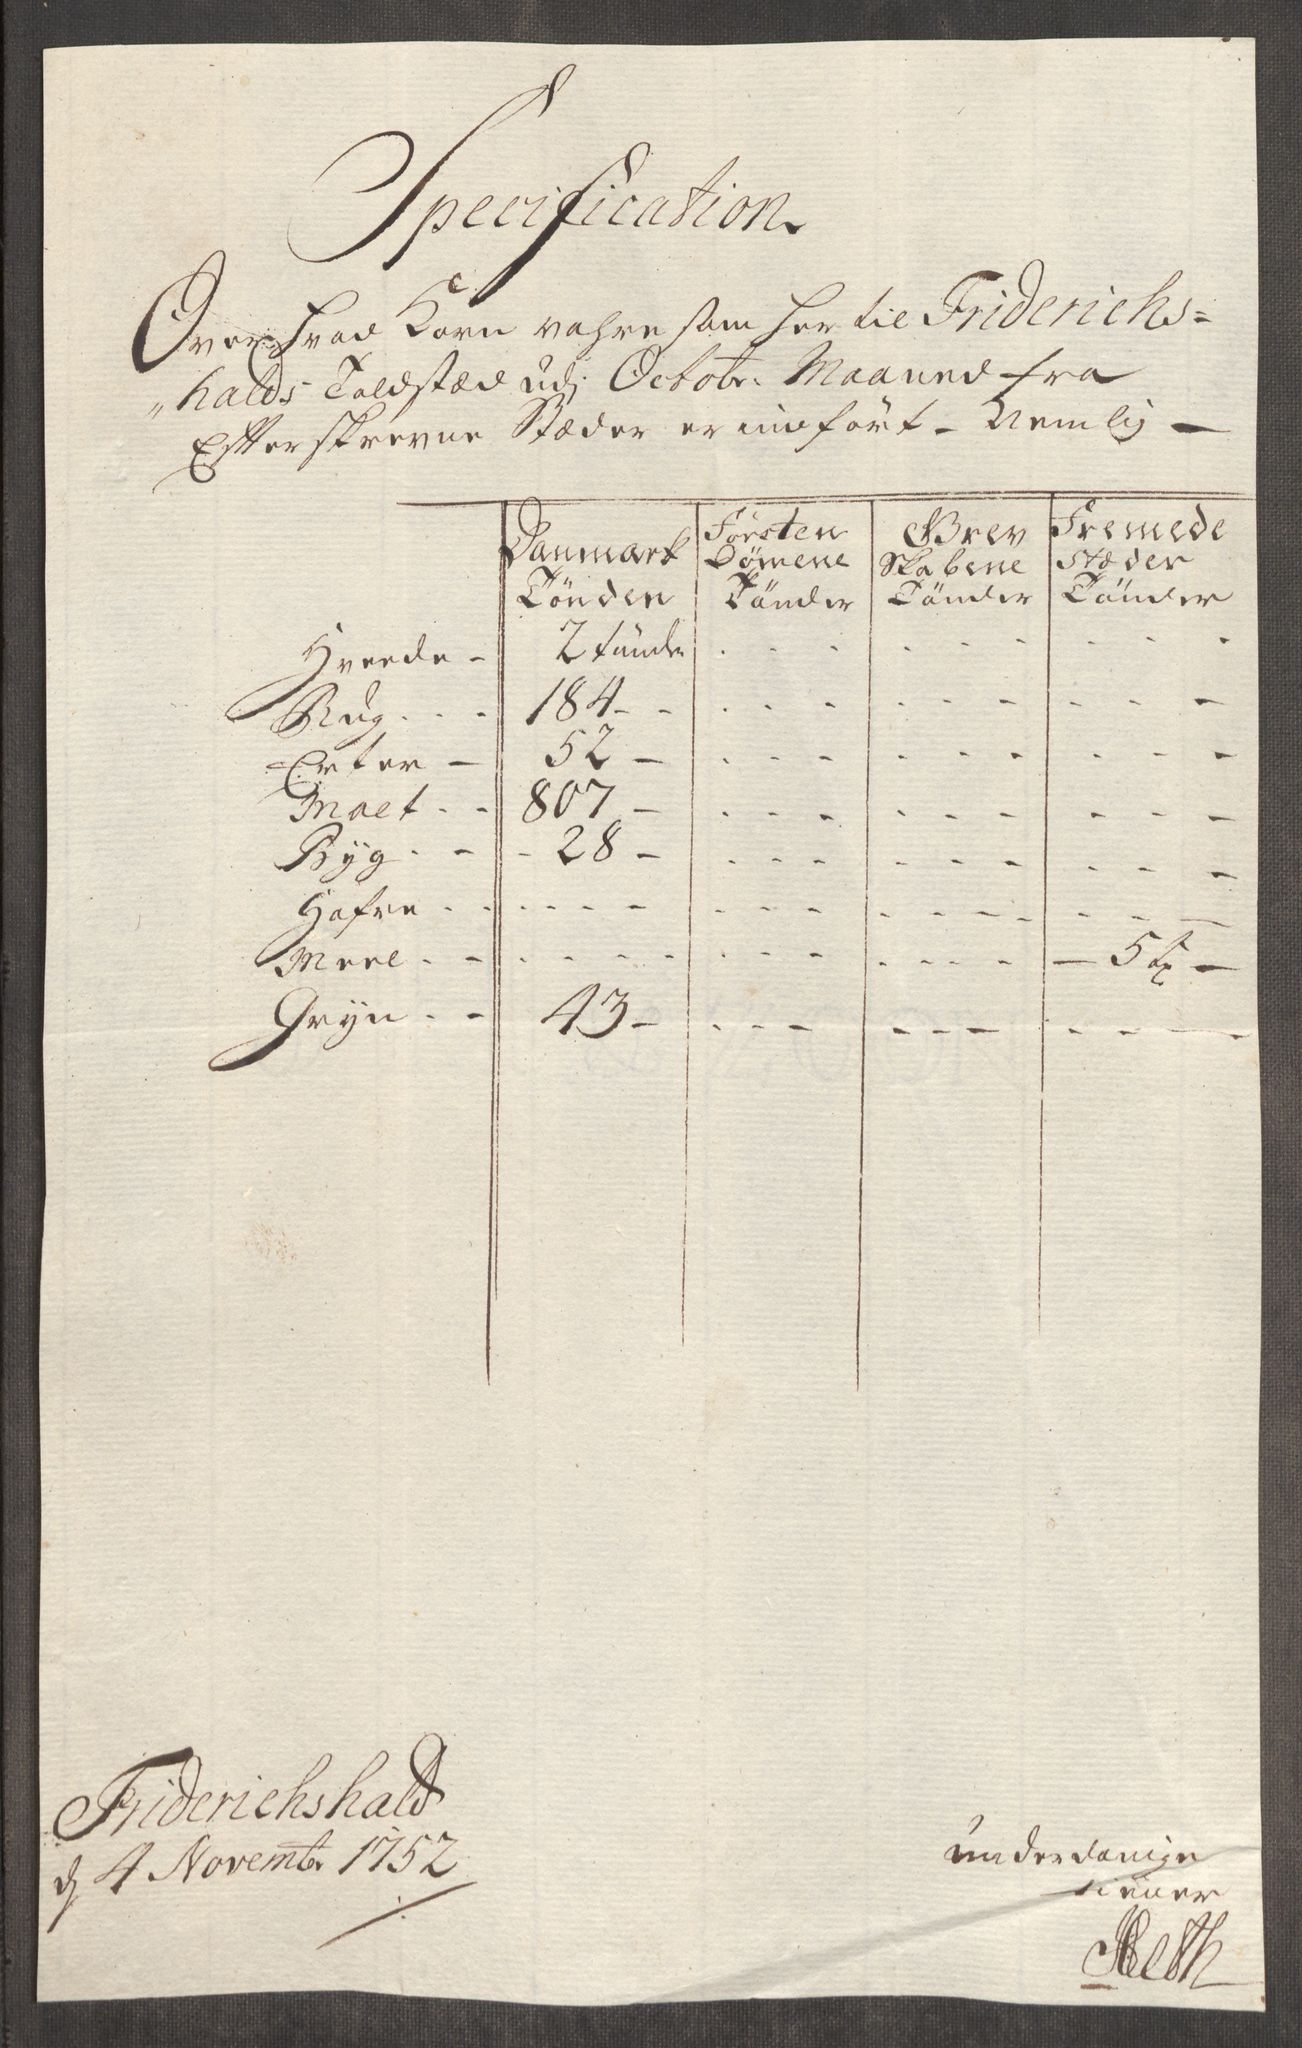 Specification
Over hvad Korn vahre som her til Friderichs=
„halds Toldstæd udj Octobr. Maaned fra
Efterskrevne Stæder er indført - Nemlig -
Danmark Försten Grev Fremede
Dömene Skabene stæder
Tönder Tönder Tönder Tönder
Hveede - 2 tünder
Rug 184
Erter - 52 -
Malt 807 -
Byg 28 -
Hafre
Meel 5
Gryn 43 -
Friderichshald
d 4 Novembr 1752
underdanige
tiener